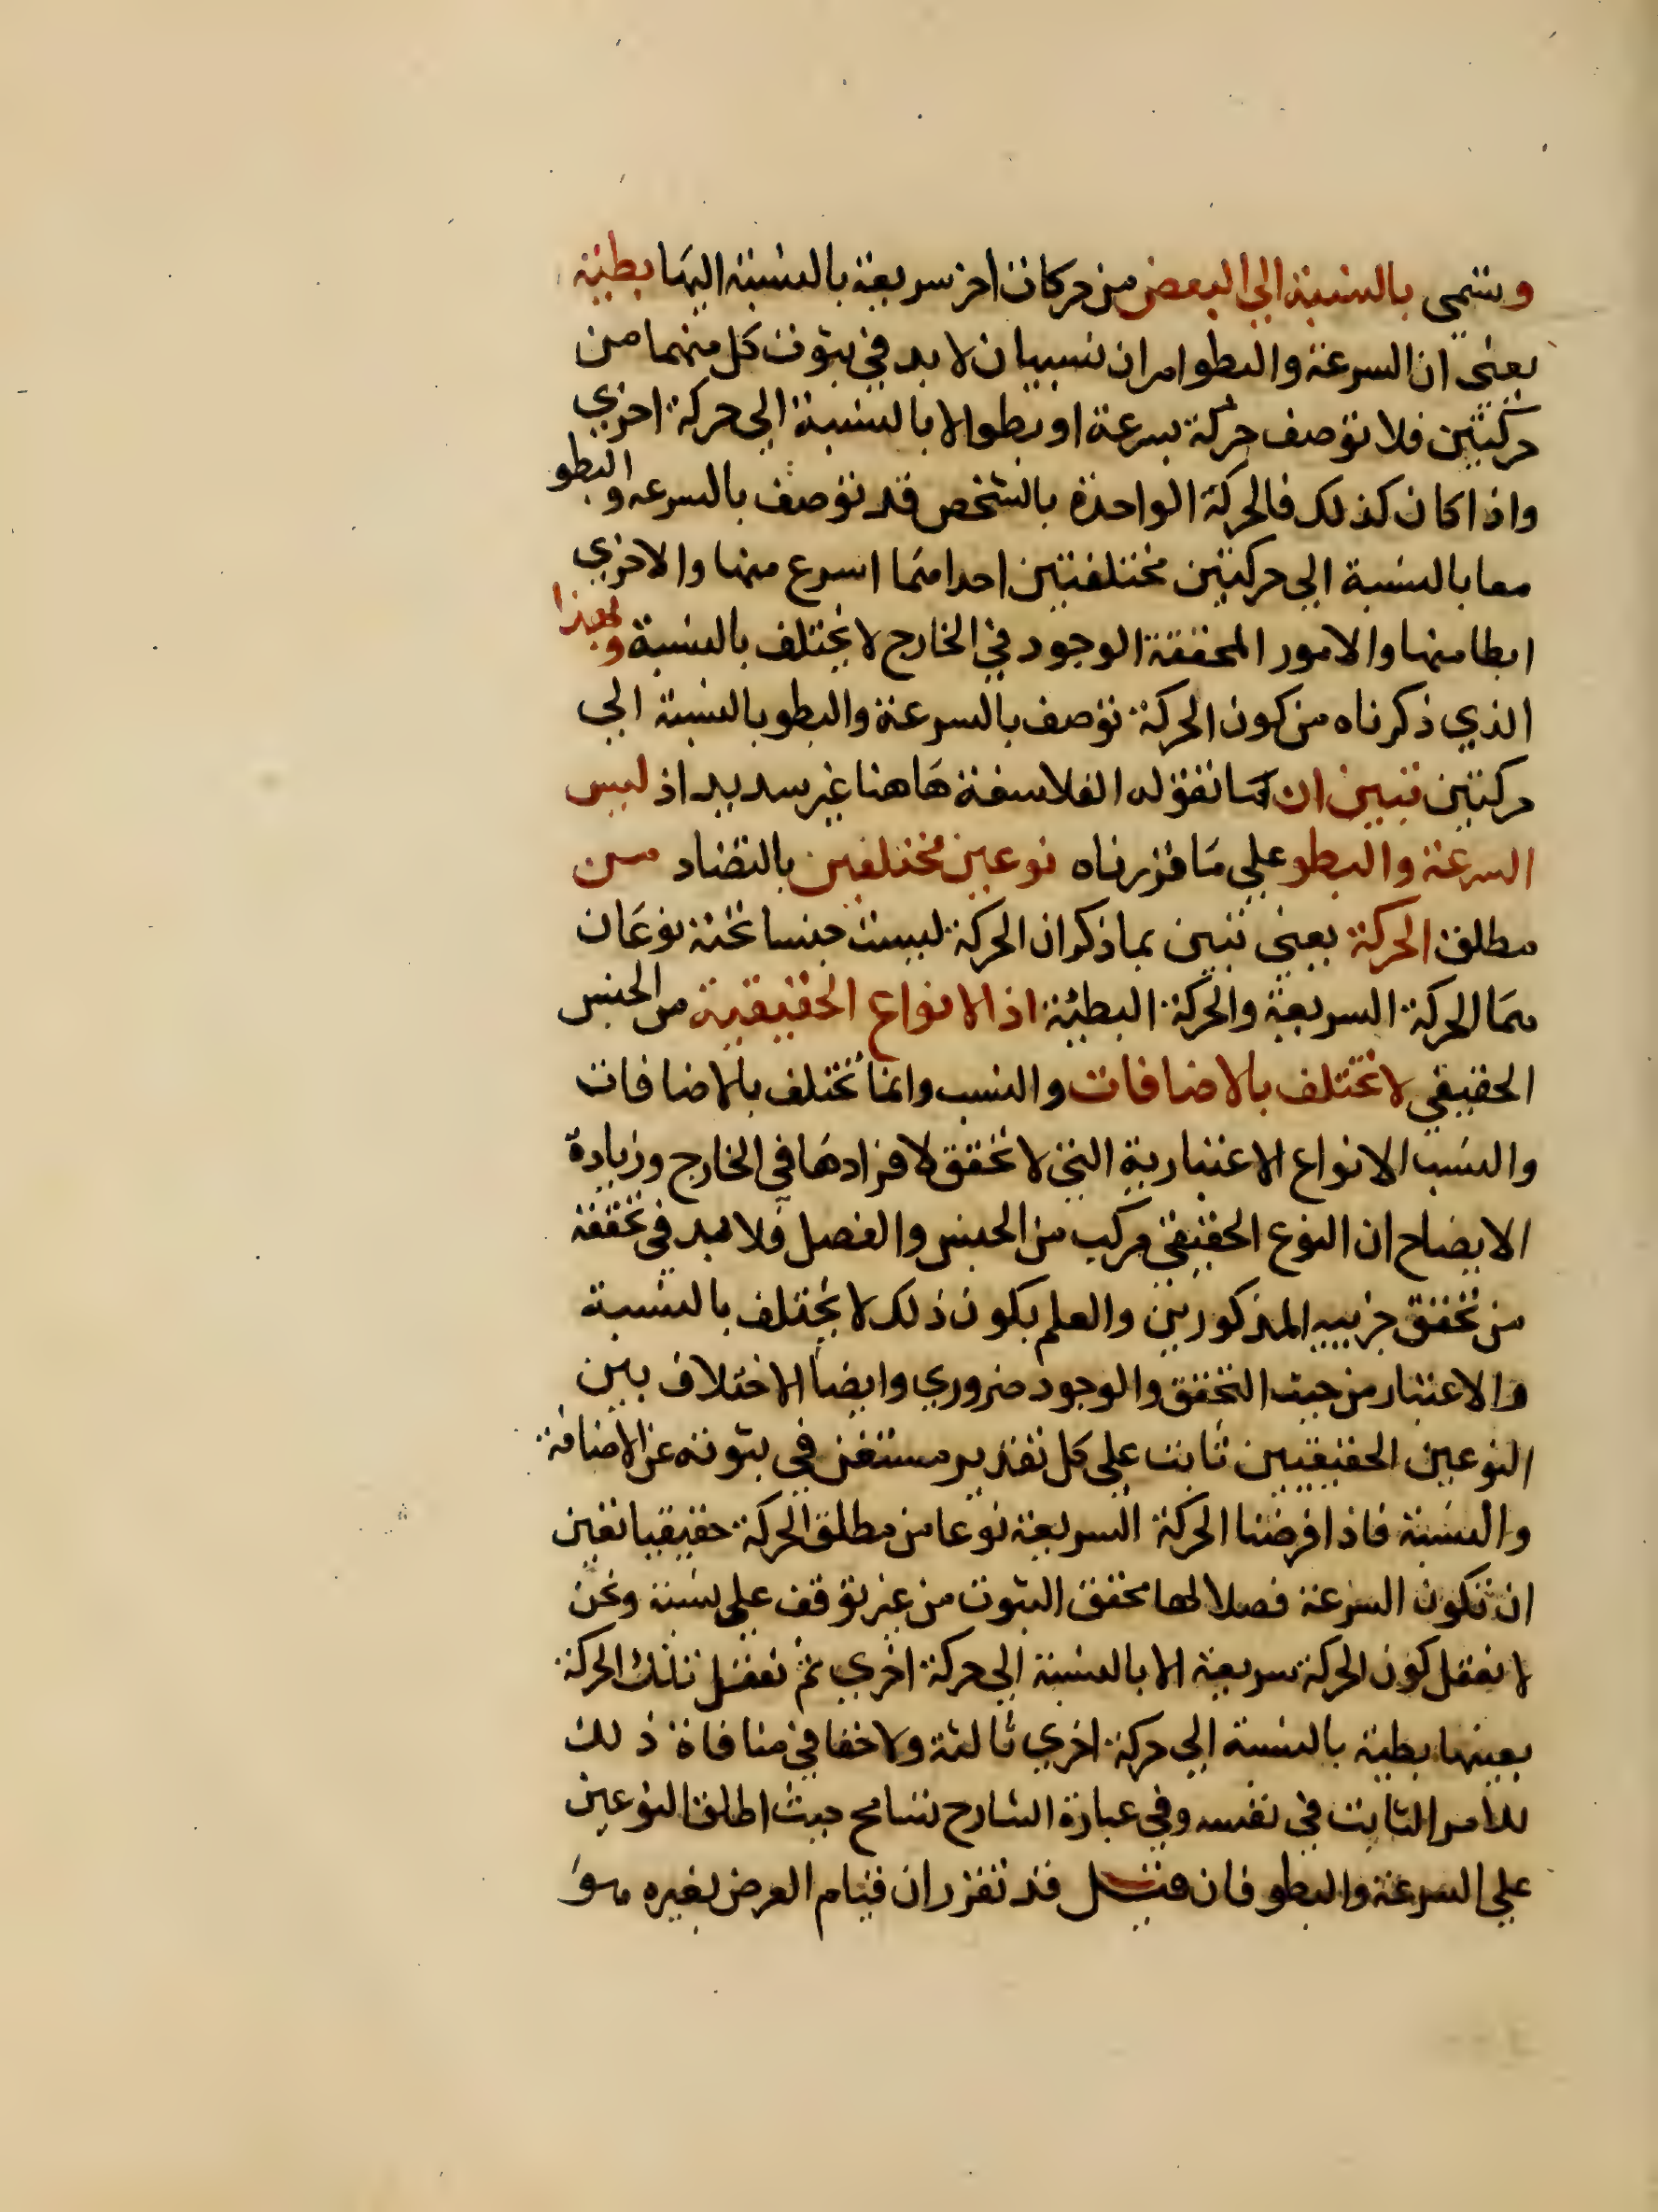 وتسمى بالنسبة الي البعض من حركات اخر سريعة بالنسبة اليها بطيئة
يعني ان السرعة والبطو امران نسبيان لا بد في ثبوت كل منهما من
حركتين فلا توصف حركة بسرعة او بطو الا بالنسبة الي حركة اخري
واذا كان كذلك فالحركة الواحدة بالشخص قد توصف بالسرعة والبطو
معا بالنسبة الي حركتين مختلفتين احداهما اسرع منها والاخري
ابطا منها والامور المحققة الوجود في الخارج لا تختلف بالنسبة وبهذا
الذي ذكرناه من كون الحركة توصف بالسرعة والبطو بالنسبة الي
حركتين تبين ان ما تقوله الفلاسفة هاهنا غير سديد اذ ليس
السرعة والبطو علي ما قررناه نوعين مختلفين بالتضاد من
مطلق الحركة يعني تبين بما ذكر ان الحركة ليست جنسا تحته نوعان
هما الحركة السريعة والحركة البطيئة اذ الانواع الحقيقية من الجنس
الحقيقي لا تختلف بالاضافات والنسب وانما تختلف بالاضافات
والنسب الانواع الاعتبارية التي لا تحقق لافرادها في الخارج وزيادة
الايضاح ان النوع الحقيقي مركب من الجنس والفصل فلا بد في تحققه
من تحقق جزييه المذكورين والعلم بكون ذلك لا يختلف بالنسبة
والاعتبار من حيث التحقق والوجود ضروري وايضا الاختلاف بين
النوعين الحقيقيين ثابت علي كل تقدير مستغن في ثبوته عن الاضافة
والنسبة فاذا فرضنا الحركة السريعة نوعا من مطلق الحركة حقيقيا تعين
ان تكون السرعة فصلا لها محقق الثبوت من غير توقف علي نسبة ونحن
لا نعقل كون الحركة سريعة الا بالنسبة الي حركة اخري ثم نعقل تلك الحركة
بعينها بطيئة بالنسبة الي حركة اخري ثالثة ولا خفا في منافاة ذلك
للامر الثابت في نفسه وفي عبارة الشارح تسامح حيث اطلق النوعين
علي السرعة والبطو فان قيل قد تقرر ان قيام العرض بغيره هو